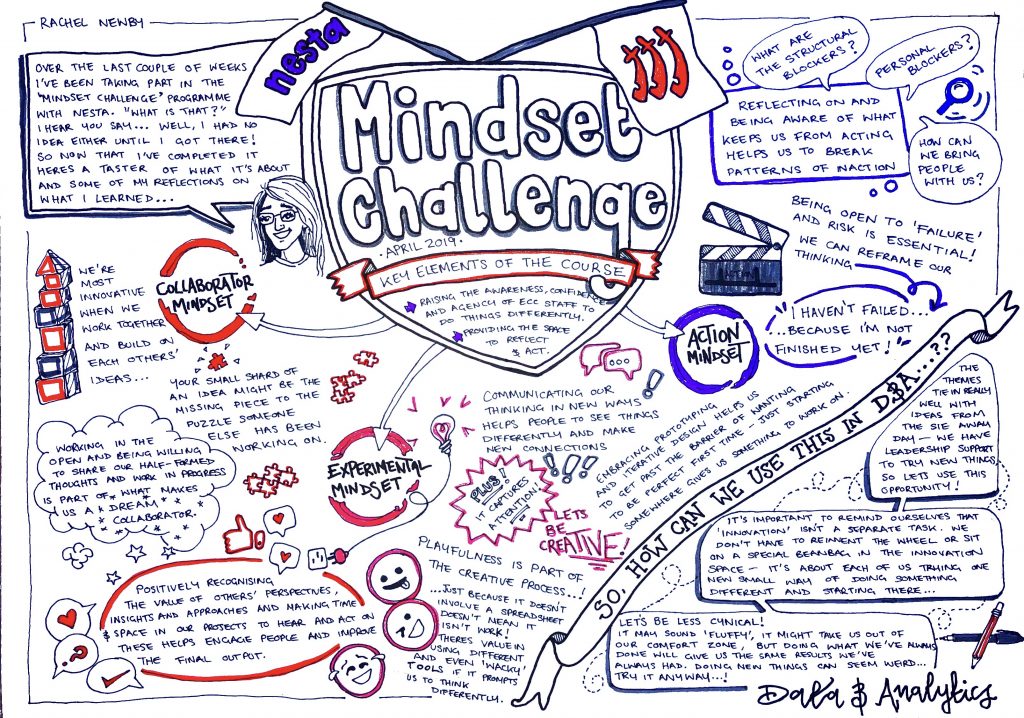 RACHEL NEWBY
OVER THE LAST COUPLE OF WEEKS
I'VE BEEN TAKING PART IN THE
'MINDSET CHALLENGE' PROGRAMME
WITH NESTA. "WHAT IS THAT?"
I HEAR YOU SAY... WELL, I HAD NO
IDEA EITHER UNTIL I GOT THERE!
SO NOW THAT I'VE COMPLETED IT
HERES A TASTER OF WHAT IT'S ABOUT
AND SOME OF MY REFLECTIONS ON
WHAT I LEARNED...
nesta
Mindset
Challenge
· APRIL 2019 ·
KEY ELEMENTS OF THE COURSE
RAISING THE AWARENESS, CONFIDENCE
AND AGENCY OF ECC STAFF TO
DO THINGS DIFFERENTLY.
PROVIDING THE SPACE
TO REFLECT
& ACT.
WHAT ARE
THE STRUCTURAL
BLOCKERS?
PERSONAL
BLOCKERS?
REFLECTING ON AND
BEING AWARE OF WHAT
KEEPS US FROM ACTING
HELPS US TO BREAK
PATTERNS OF INACTION
HOW CAN
WE BRING
PEOPLE
WITH US?
COLLABORATOR
MINDSET
WE'RE
MOST
INNOVATIVE
WHEN WE
WORK TOGETHER
AND BUILD ON
EACH OTHERS'
IDEAS...
YOUR SMALL SHARD OF
AN IDEA MIGHT BE THE
MISSING PIECE TO THE
PUZZLE SOMEONE
ELSE HAS BEEN
WORKING ON.
WORKING IN THE
OPEN AND BEING WILLING
TO SHARE OUR HALF-FORMED
THOUGHTS AND WORK IN PROGRESS
IS PART OF WHAT MAKES
US A DREAM
COLLABORATOR.
POSITIVELY RECOGNISING
THE VALUE OF OTHERS' PERSPECTIVES,
INSIGHTS AND APPROACHES AND MAKING TIME
& SPACE IN OUR PROJECTS TO HEAR AND ACT ON
THESE HELPS ENGAGE PEOPLE AND IMPROVE
THE FINAL OUTPUT.
?
EXPERIMENTAL
MINDSET
COMMUNICATING OUR
THINKING IN NEW WAYS
HELPS PEOPLE TO SEE THINGS
DIFFERENTLY AND MAKE
NEW CONNECTIONS
PLUS!
IT CAPTURES
ATTENTION!
!!!
EMBRACING PROTOTYPING
AND ITERATIVE DESIGN HELPS US
TO GET PAST THE BARRIER OF WANTING
TO BE PERFECT FIRST TIME - JUST STARTING
SOMEWHERE GIVES US SOMETHING TO WORK ON.
LETS
BE
CREATIVE!
PLAYFULNESS IS PART OF
THE CREATIVE PROCESS...!
...JUST BECAUSE IT DOESN'T
INVOLVE A SPREADSHEET
DOESN'T MEAN IT
ISN'T WORK!
THERES VALUE IN
USING DIFFERENT
AND EVEN 'WACKY'
TOOLS IF IT PROMPTS
US TO THINK
DIFFERENTLY.
ACTION
MINDSET
BEING OPEN TO 'FAILURE'
AND RISK IS ESSENTIAL!
WE CAN REFRAME OUR
THINKING
I HAVEN'T FAILED...
...BECAUSE I'M NOT
FINISHED YET!
SO, HOW CAN WE USE THIS IN D&A...??
THE
THEMES
TIE IN REALLY
WELL WITH
IDEAS FROM
THE SIE AWAY
DAY - WE HAVE
LEADERSHIP SUPPORT
TO TRY NEW THINGS
SO LETS USE THIS
OPPORTUNITY!
IT'S IMPORTANT TO REMIND OURSELVES THAT
'INNOVATION' ISN'T A SEPARATE TASK. WE
DON'T HAVE TO REINVENT THE WHEEL OR SIT
ON A SPECIAL BEANBAG IN THE INNOVATION
SPACE - IT'S ABOUT EACH OF US TRYING ONE
NEW SMALL WAY OF DOING SOMETHING
DIFFERENT AND STARTING THERE...
LET'S BE LESS CYNICAL!
IT MAY SOUND 'FLUFFY', IT MIGHT TAKE US OUT OF
OUR COMFORT ZONE, BUT DOING WHAT WE'VE ALWAYS
DONE WILL GIVE US THE SAME RESULTS WE'VE
ALWAYS HAD. DOING NEW THINGS CAN SEEM WEIRD...
TRY IT ANYWAY...!
Data & Analytics